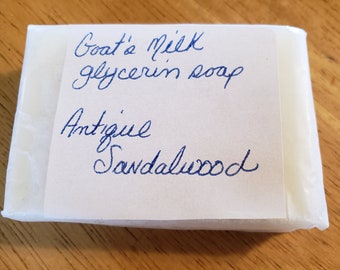 Goat's Milk
glycerin soap
Antique
Sandalwood